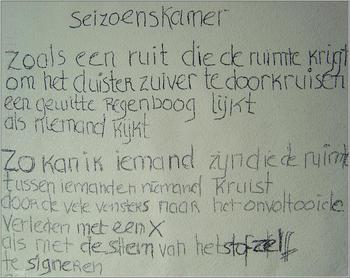 seizoenskamer
zoals een ruit die de ruimte krijgt
om het duister zuiver te doorkruisen
een gewitte regenboog lijkt
als niemand kijkt
zo kan ik iemand zijn die de ruimte
tussen iemand en niemand kruist
door de vele vensters naar het onvoltooide
verleden met een X
als met de stem van het stof zelf
te signeren